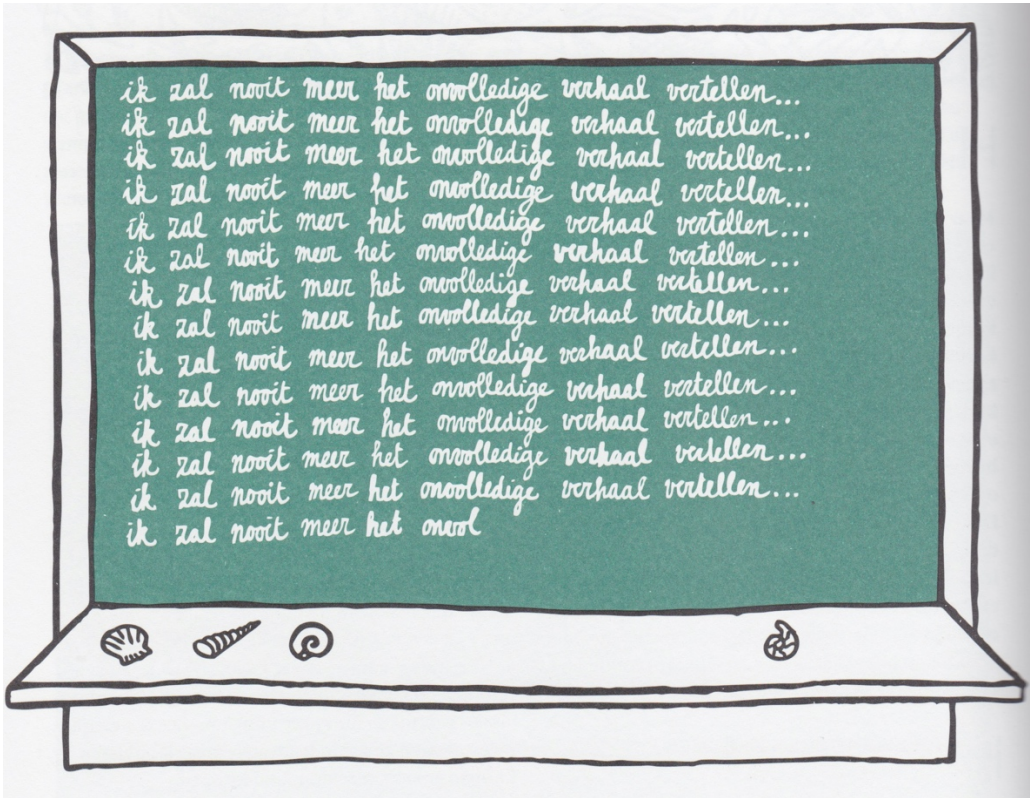 ik zal nooit meer het onvolledige verhaal vertellen...
ik zal nooit meer het onvolledige verhaal vertellen...
ik zal nooit meer het onvolledige verhaal vertellen...
ik zal nooit meer het onvolledige verhaal vertellen...
ik zal nooit meer het onvolledige verhaal vertellen...
ik zal nooit meer het onvolledige verhaal vertellen...
ik zal nooit meer het onvolledige verhaal vertellen...
ik zal nooit meer het onvolledige verhaal vertellen...
ik zal nooit meer het onvolledige verhaal vertellen...
ik zal nooit meer het onvolledige verhaal vertellen...
ik zal nooit meer het onvolledige verhaal vertellen...
ik zal nooit meer het onvolledige verhaal vertellen...
ik zal nooit meer het onvolledige verhaal vertellen...
ik zal nooit meer het onvol